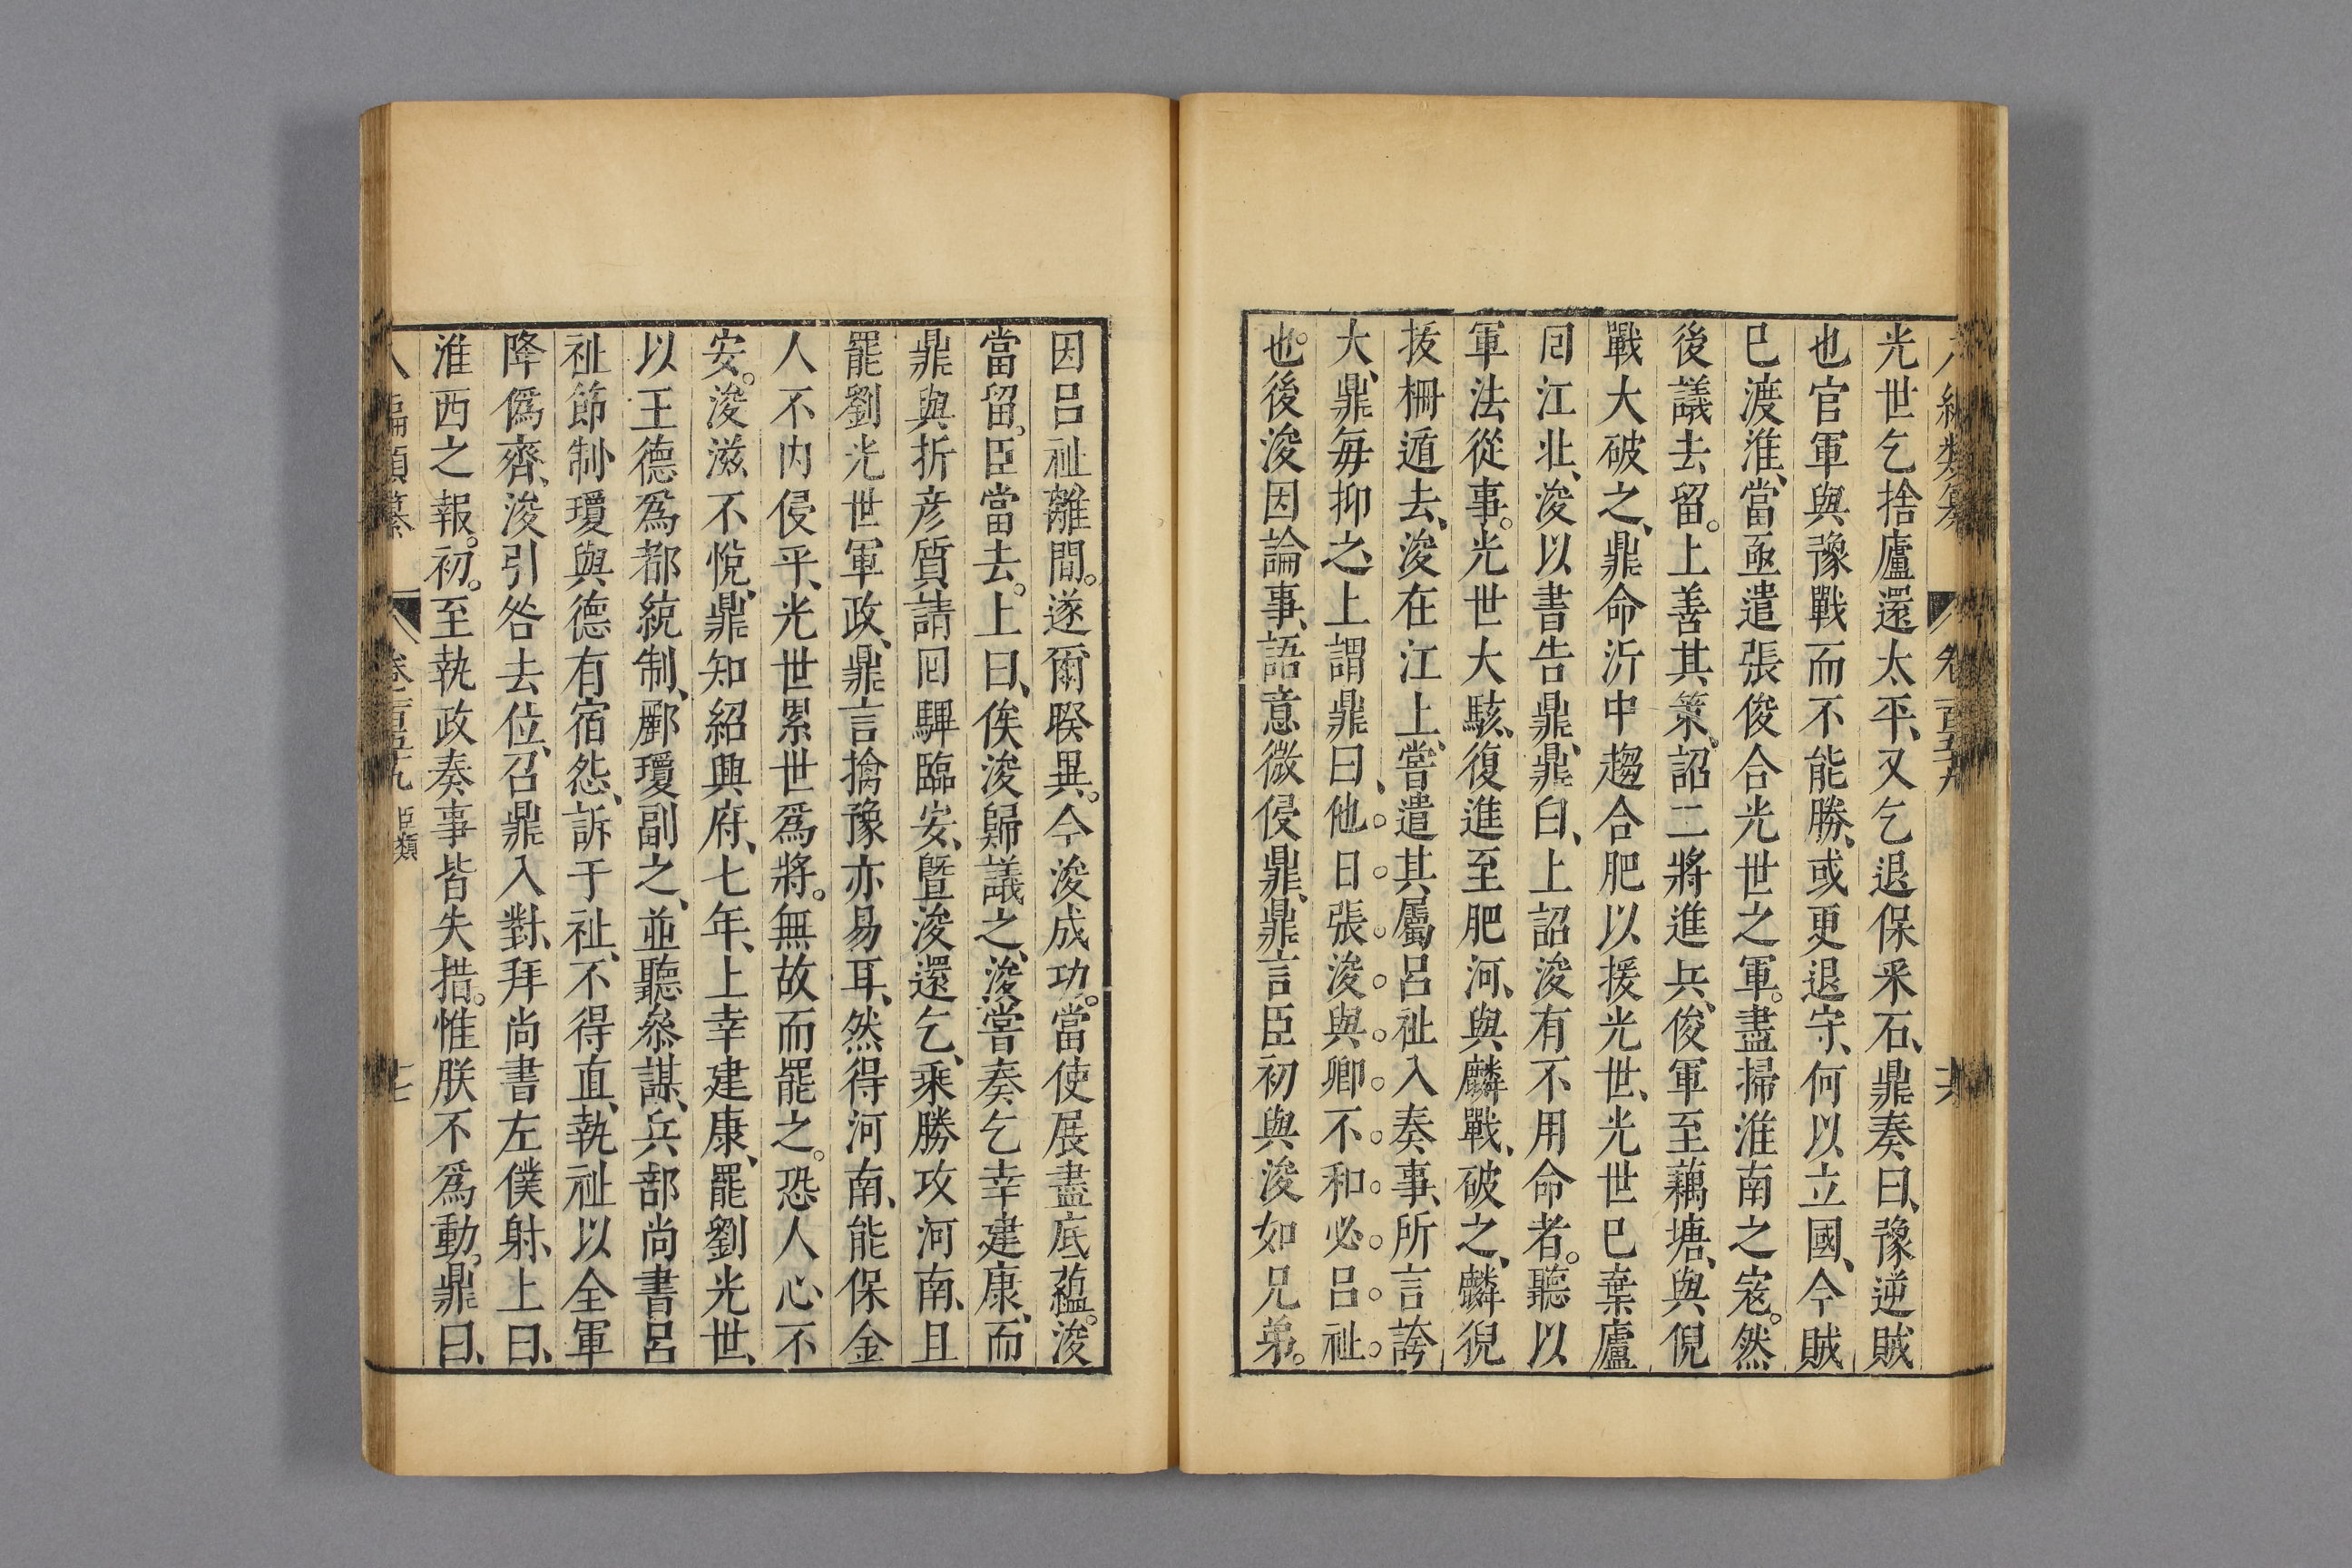 光世乞捨廬還太平、又乞退保采石、鼎奏曰、豫逆賊
也官軍與豫戰而不能勝、或更退守、何以立國、今賊
已渡淮、當亟遣張俊合光世之軍。盡掃淮南之寇。然
後議去留。上善其策。詔二將進兵、俊軍至藕塘、與倪
戰大破之、鼎命沂中趨合肥以援光世、光世已棄廬
囘江北、浚以書告鼎、鼎曰、上詔浚有不用命者。聽以
軍法從事。光世大駭、復進至肥河、與麟戰、破之、麟猊
拔柵遁去、浚在江上、嘗遣其屬呂祉入奏事、所言誇
大、鼎每抑之、上謂鼎曰、他日張浚與卿不和必呂祉。
也。後浚因論事、語意微侵鼎、鼎言臣初與浚如兄弟。
因呂祉離間。遂爾暌異。今浚成功。當使展盡底蘊。浚
當留。臣當去。上曰、俟浚歸議之、浚嘗奏乞幸建康、而
鼎與折彥質請囘驆臨安、暨浚還乞、乘勝攻河南、且
罷劉光世軍政、鼎言擒豫亦易耳、然得河南、能保金
人不內侵乎、光世累世爲將。無故而罷之。恐人心不
安。浚滋不悅、鼎知紹興府、七年、上幸建康、罷劉光世、
以王德爲都統制、酈瓊副之、並聽叅謀、兵部尚書呂
祉節制、瓊與德有宿怨、訴于祉、不得直、執祉以全軍
降僞齊、浚引咎去位、召鼎入對、拜尚書左僕射、上曰、
淮西之報。初。至執政奏事皆失措。惟朕不爲動。鼎曰、
編類纂 卷二百五九 臣類 十七